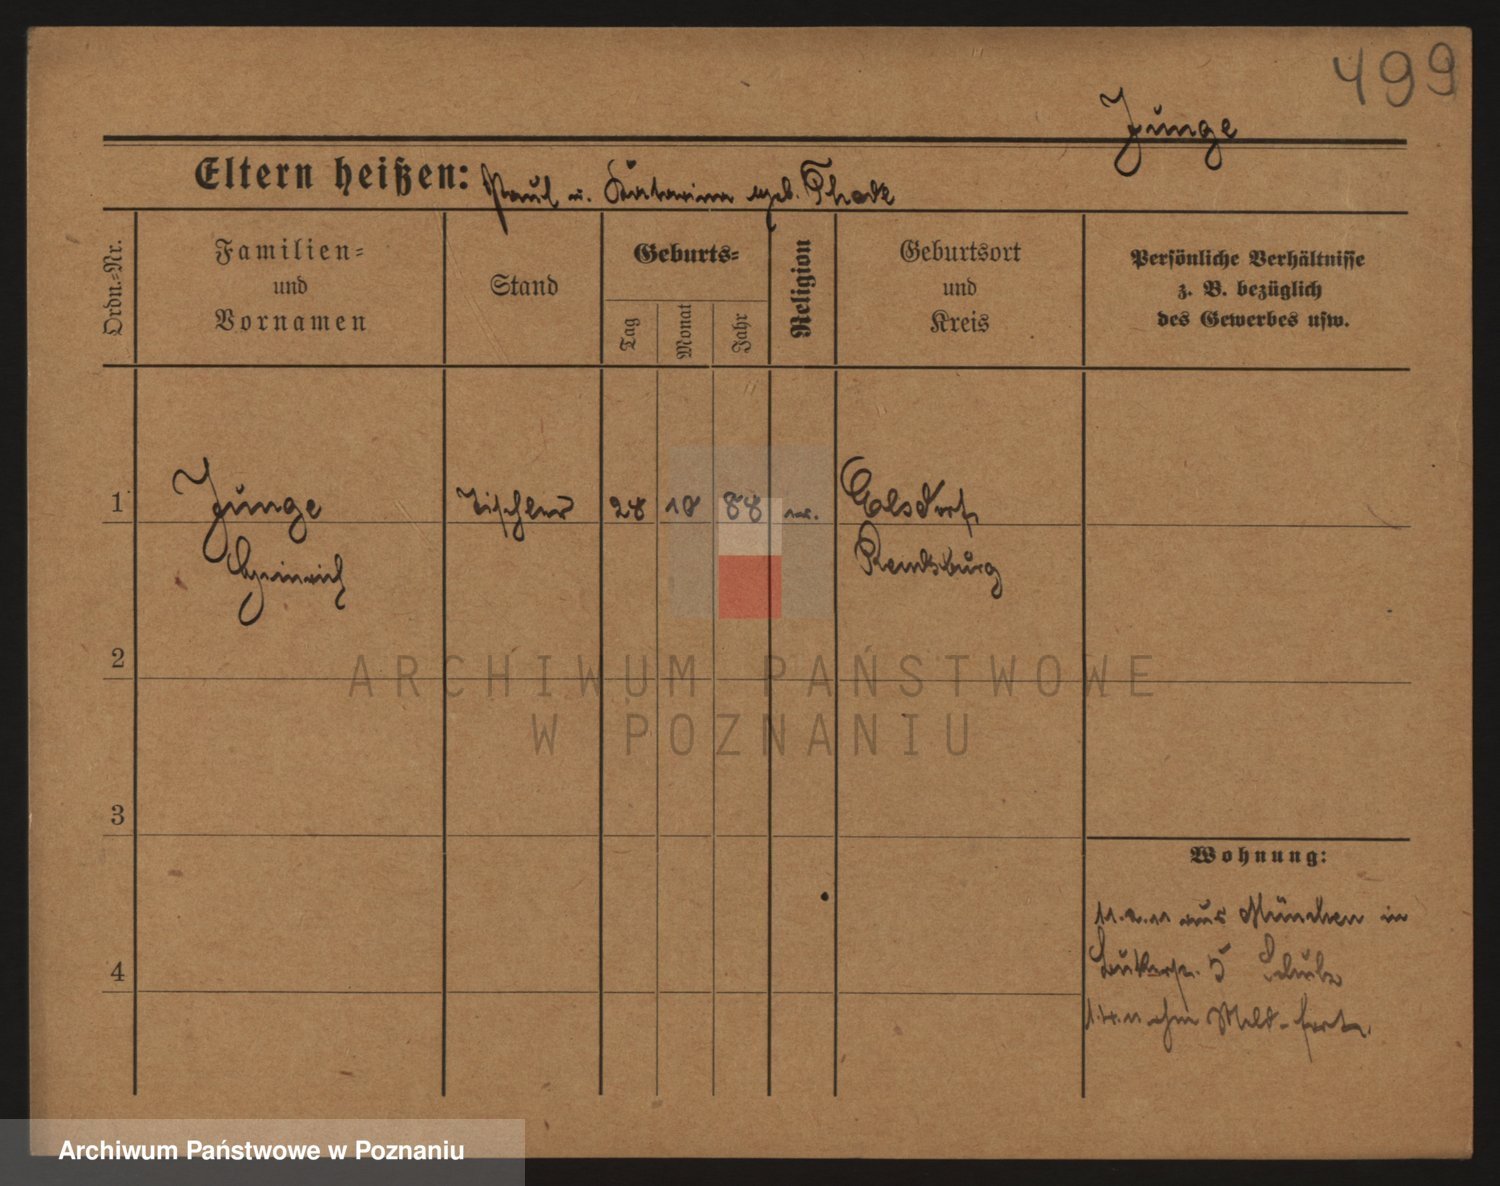 499
Junge
Eltern heißen: Paul u. Katarina geb. Thode
Ordn.-Nr.
Familien-
und
Vornamen
Stand
Geburts-
Tag
Monat
Jahr
Religion
Geburtsort
und
Kreis
Persönliche Verhältnisse
z. B. bezüglich
des Gewerbes usw.
1 Junge Tischler 28 10 88 ev. Elsdorf
Heinrich Rendsburg
2
ARCHIWUM PAŃSTWOWE
W POZNANIU
3
Wohnung:
11.2.11 aus München in
5 Schulz
4
ohm Meld-
Archiwum Państwowe w Poznaniu